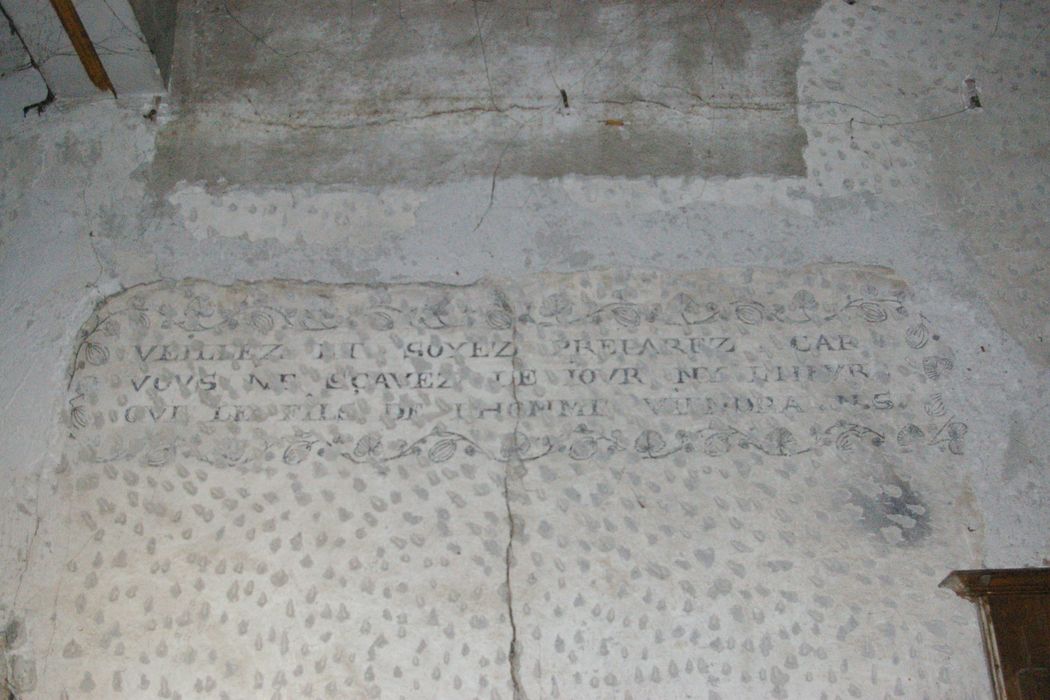 VEILLEZ ET SOYEZ PREPAREZ CAR
VOVS NE SÇAVEZ LE IOVR NY LHEVR
QVE LE FILS DE LHOMME VIENDRA N.S.